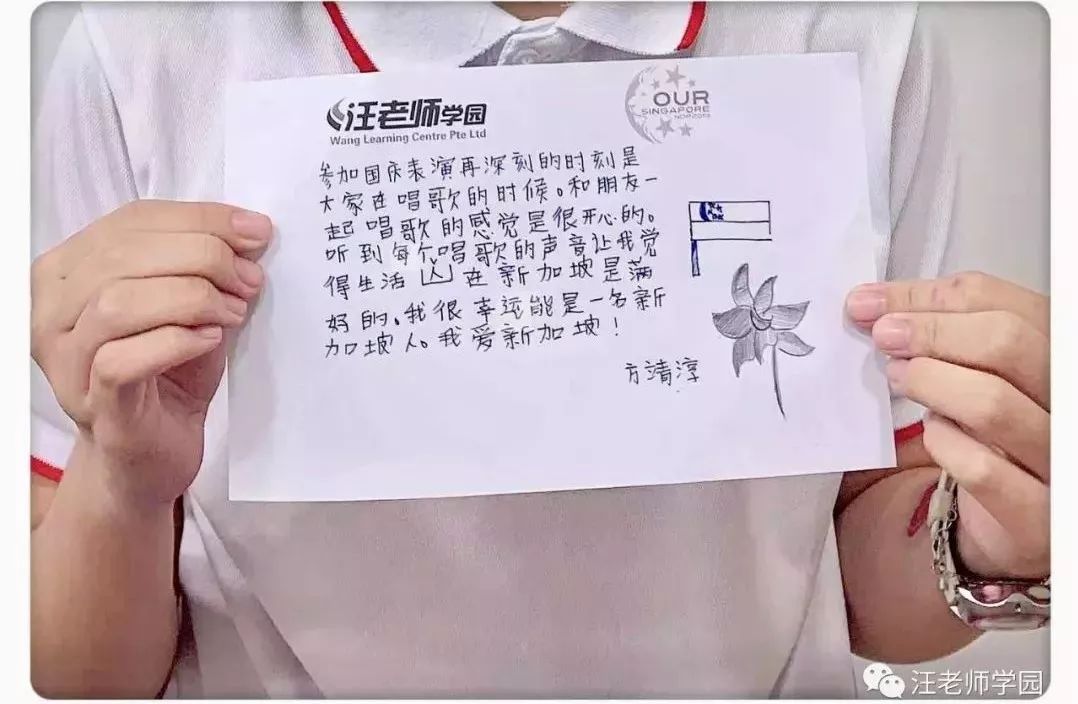 汪老师学园
Wang Learning Centre Pte Ltd
OUR
SINGAPORE
NDP2019
参加国庆表演再深刻的时刻是
大家在唱歌的时候。和朋友一
起唱歌的感觉是很开心的。
听到每个唱歌的声音让我觉
得生活在新加坡是满
好的。我很幸运能是一名新
加坡人。我爱新加坡!
方清淳
汪老师学园